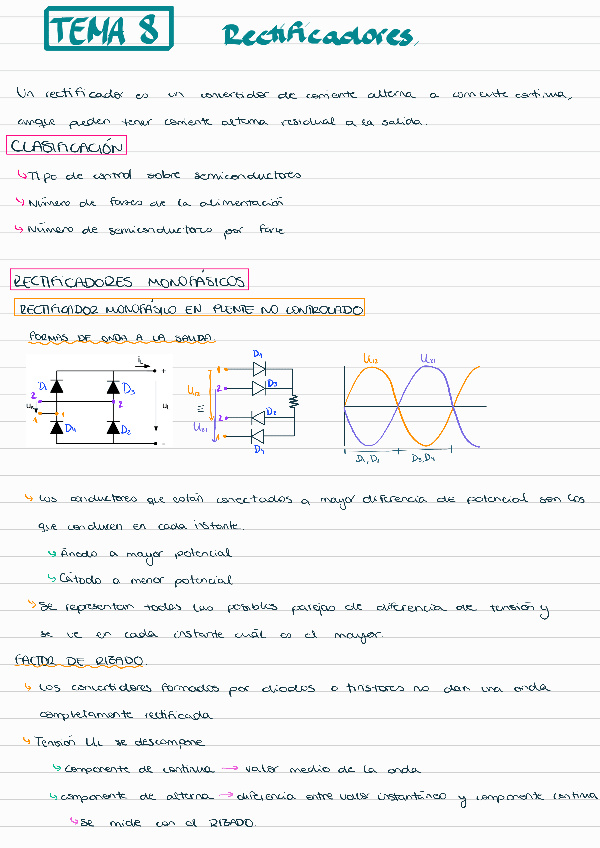 TEMA 8 Rectificadores.
Un rectificador es un convertidor de corriente alterna a corriente continua,
aunque pueden tener corriente alterna residual a la salida.
CLASIFICACIÓN
↳ Tipo de control sobre semiconductores
↳ Número de fases de la alimentación
↳ Número de semiconductores por fase
RECTIFICADORES MONOFÁSICOS
RECTIFICADOR MONOFÁSICO EN PUENTE NO CONTROLADO
FORMAS DE ONDA A LA SALIDA.
D1 D3 D4 D2 iL + - 2 1 2 1
D1 D3 D2 D4 1 2 2 1 U12 U21
U12 U21
D1, D2 D3, D4
↳ Los conductores que están conectados a mayor diferencia de potencial son los
que conducen en cada instante.
↳ Ánodo a mayor potencial
↳ Cátodo a menor potencial
↳ Se representan todas las posibles parejas de diferencia de tensión y
se ve en cada instante cuál es el mayor.
FACTOR DE RIZADO.
↳ Los convertidores formados por diodos o tiristores no dan una onda
completamente rectificada
↳ Tensión UL se descompone
↳ componente de continua → valor medio de la onda
↳ componente de alterna → diferencia entre valor instantáneo y componente continua
↳ Se mide con el RIZADO.